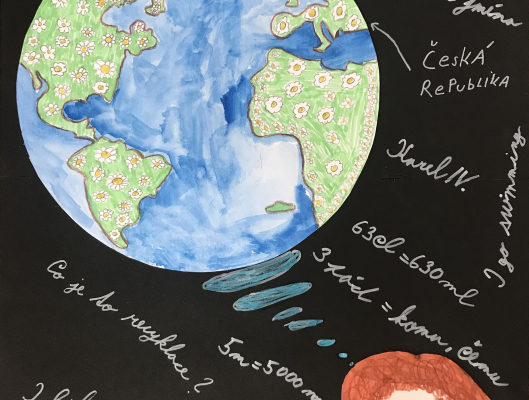 ČESKÁ
REPUBLIKA
Karel IV.
I go swimming
63cl = 630 ml
3. pád = komu, čemu
Co je to recyklace?
5m = 5000 m